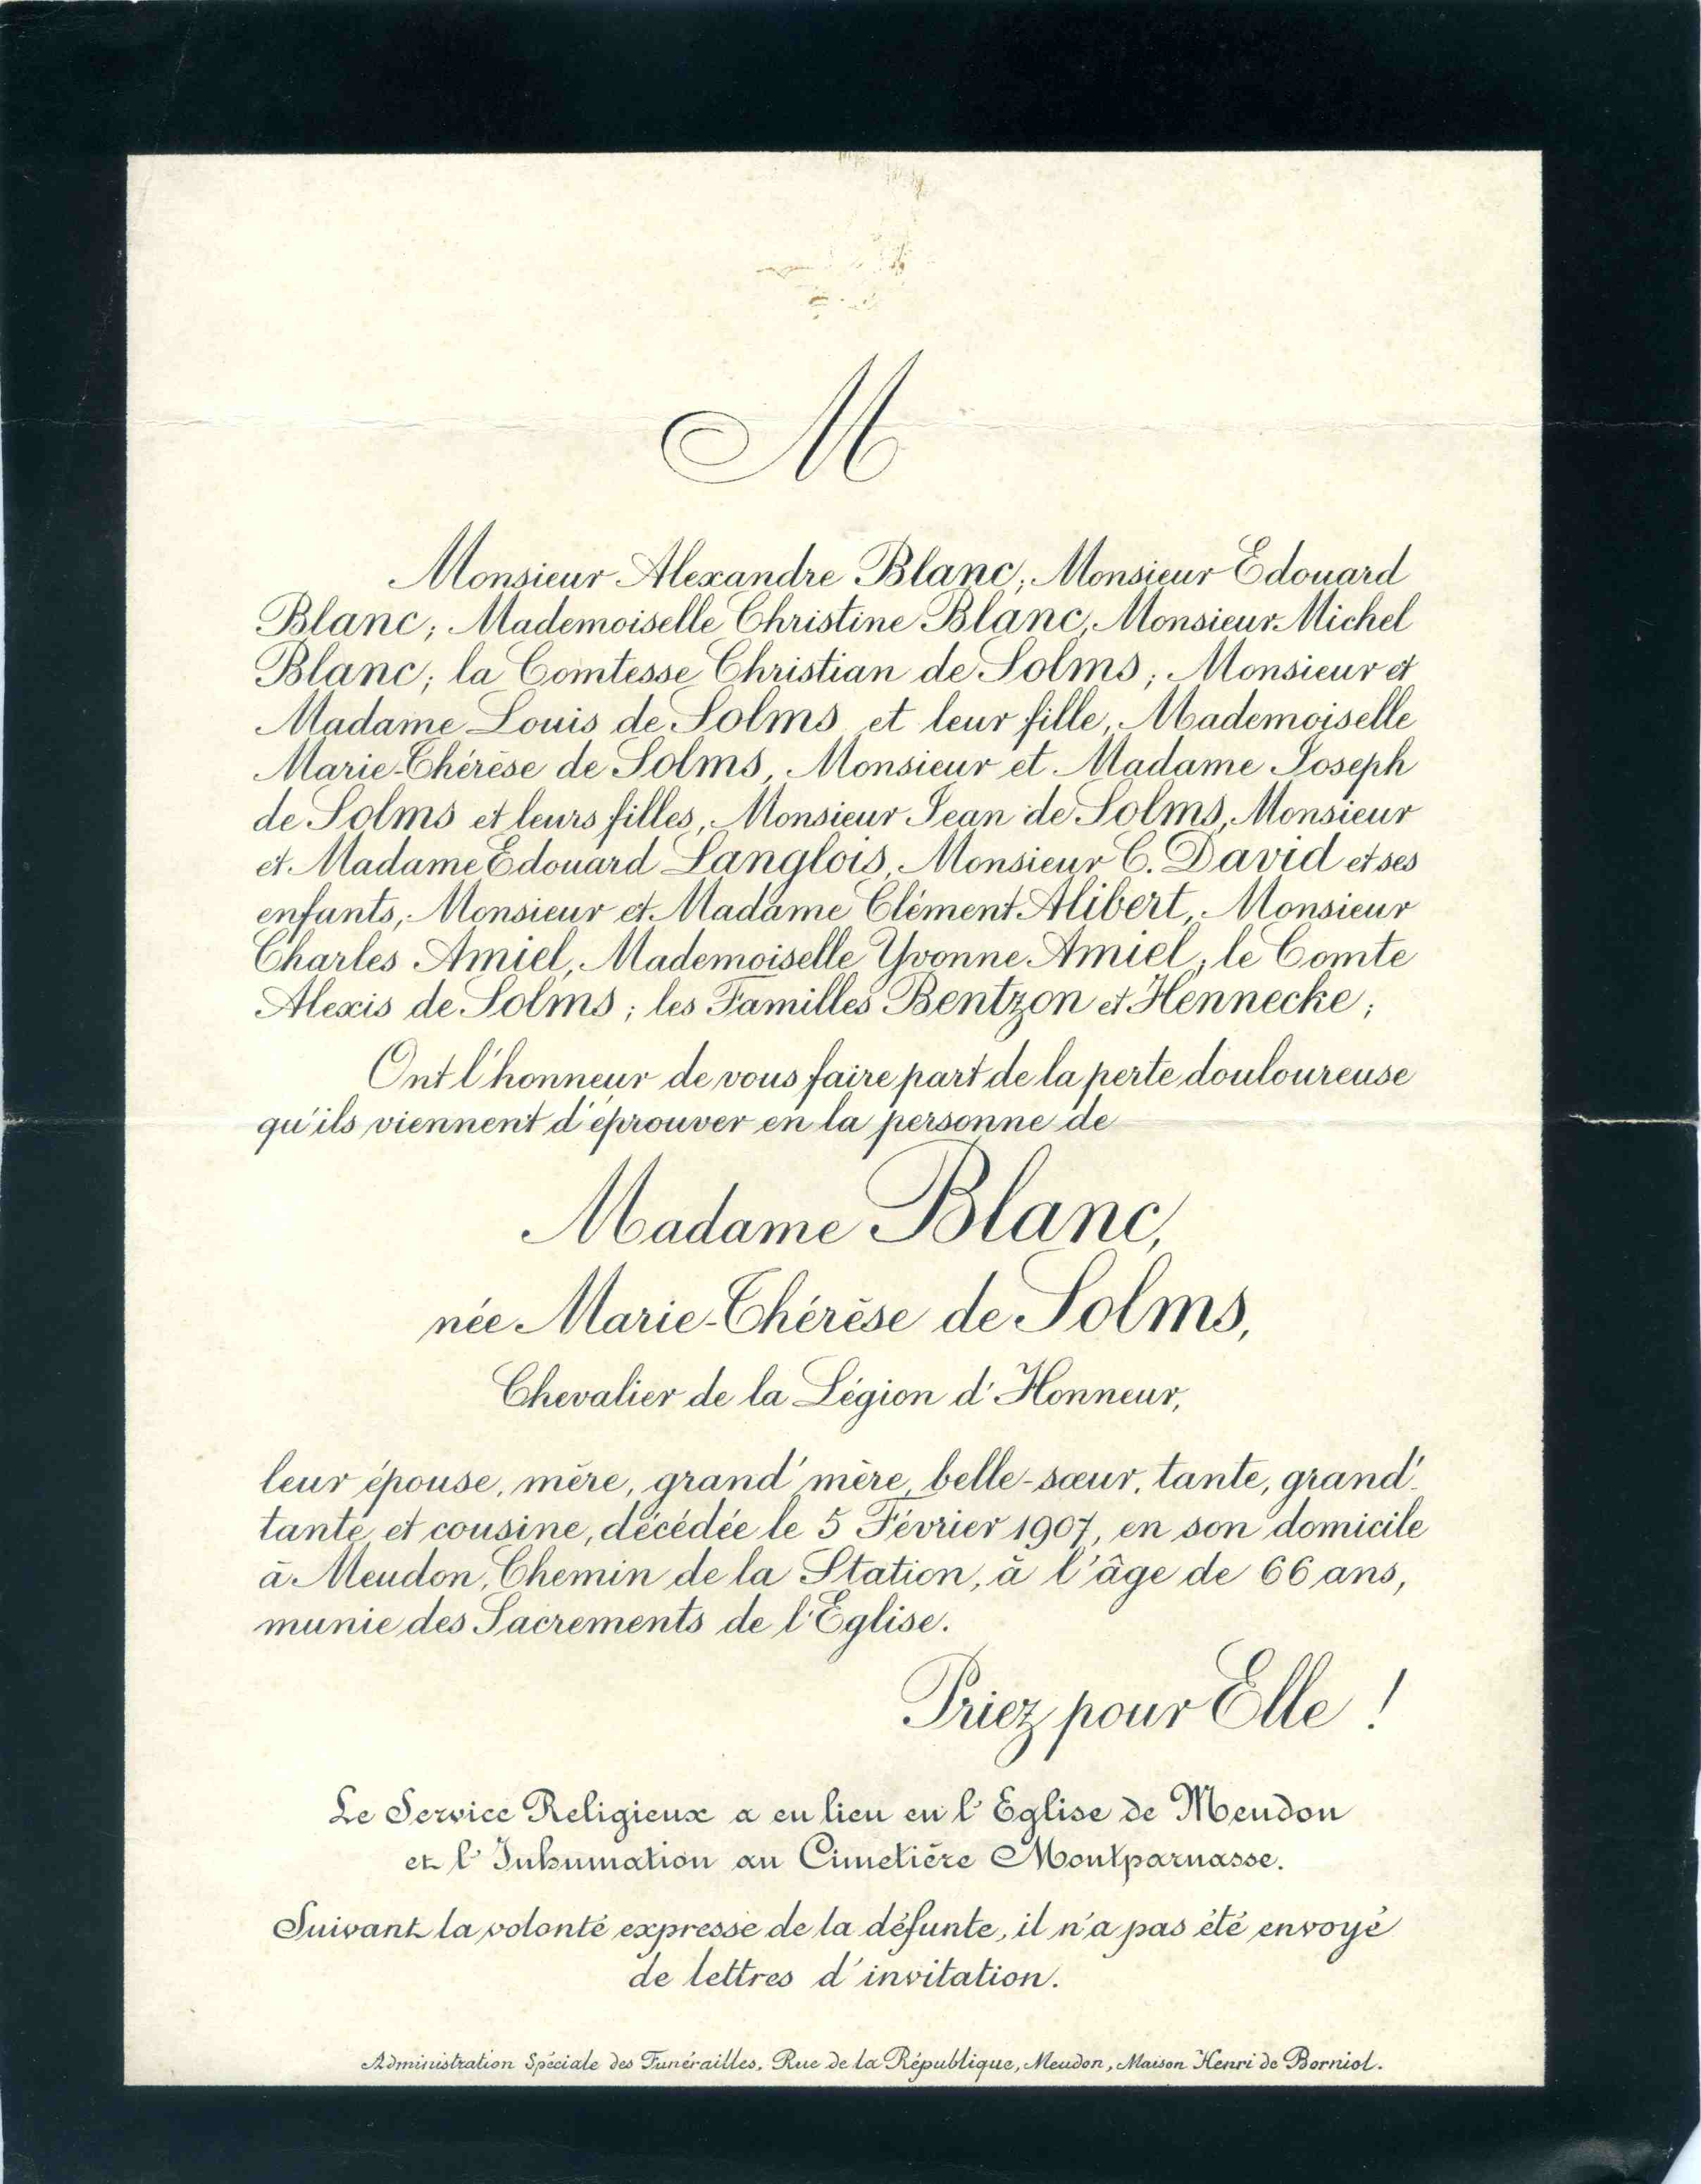 M
Monsieur Alexandre Blanc; Monsieur Edouard
Blanc; Mademoiselle Christine Blanc, Monsieur Michel
Blanc; la Comtesse Christian de Solms; Monsieur et
Madame Louis de Solms et leur fille, Mademoiselle
Marie-Thérèse de Solms, Monsieur et Madame Joseph
de Solms et leurs filles, Monsieur Jean de Solms, Monsieur
et Madame Edouard Langlois, Monsieur C. David et ses
enfants, Monsieur et Madame Clément Alibert, Monsieur
Charles Amiel, Mademoiselle Yvonne Amiel; le Comte
Alexis de Solms; les Familles Bentzon et Hennecke;
Ont l'honneur de vous faire part de la perte douloureuse
qu'ils viennent d'éprouver en la personne de
Madame Blanc,
née Marie-Thérèse de Solms,
Chevalier de la Légion d'Honneur,
leur épouse, mère, grand'mère, belle-sœur, tante, grand'-
tante et cousine, décédée le 5 Février 1907, en son domicile
à Meudon, Chemin de la Station, à l'âge de 66 ans,
munie des Sacrements de l'Eglise.
Priez pour Elle !
Le Service Religieux a eu lieu en l'Eglise de Meudon
et l'Inhumation au Cimetière Montparnasse.
Suivant la volonté expresse de la défunte, il n'a pas été envoyé
de lettres d'invitation.
Administration Spéciale des Funérailles, Rue de la République, Meudon, Maison Henri de Borniol.